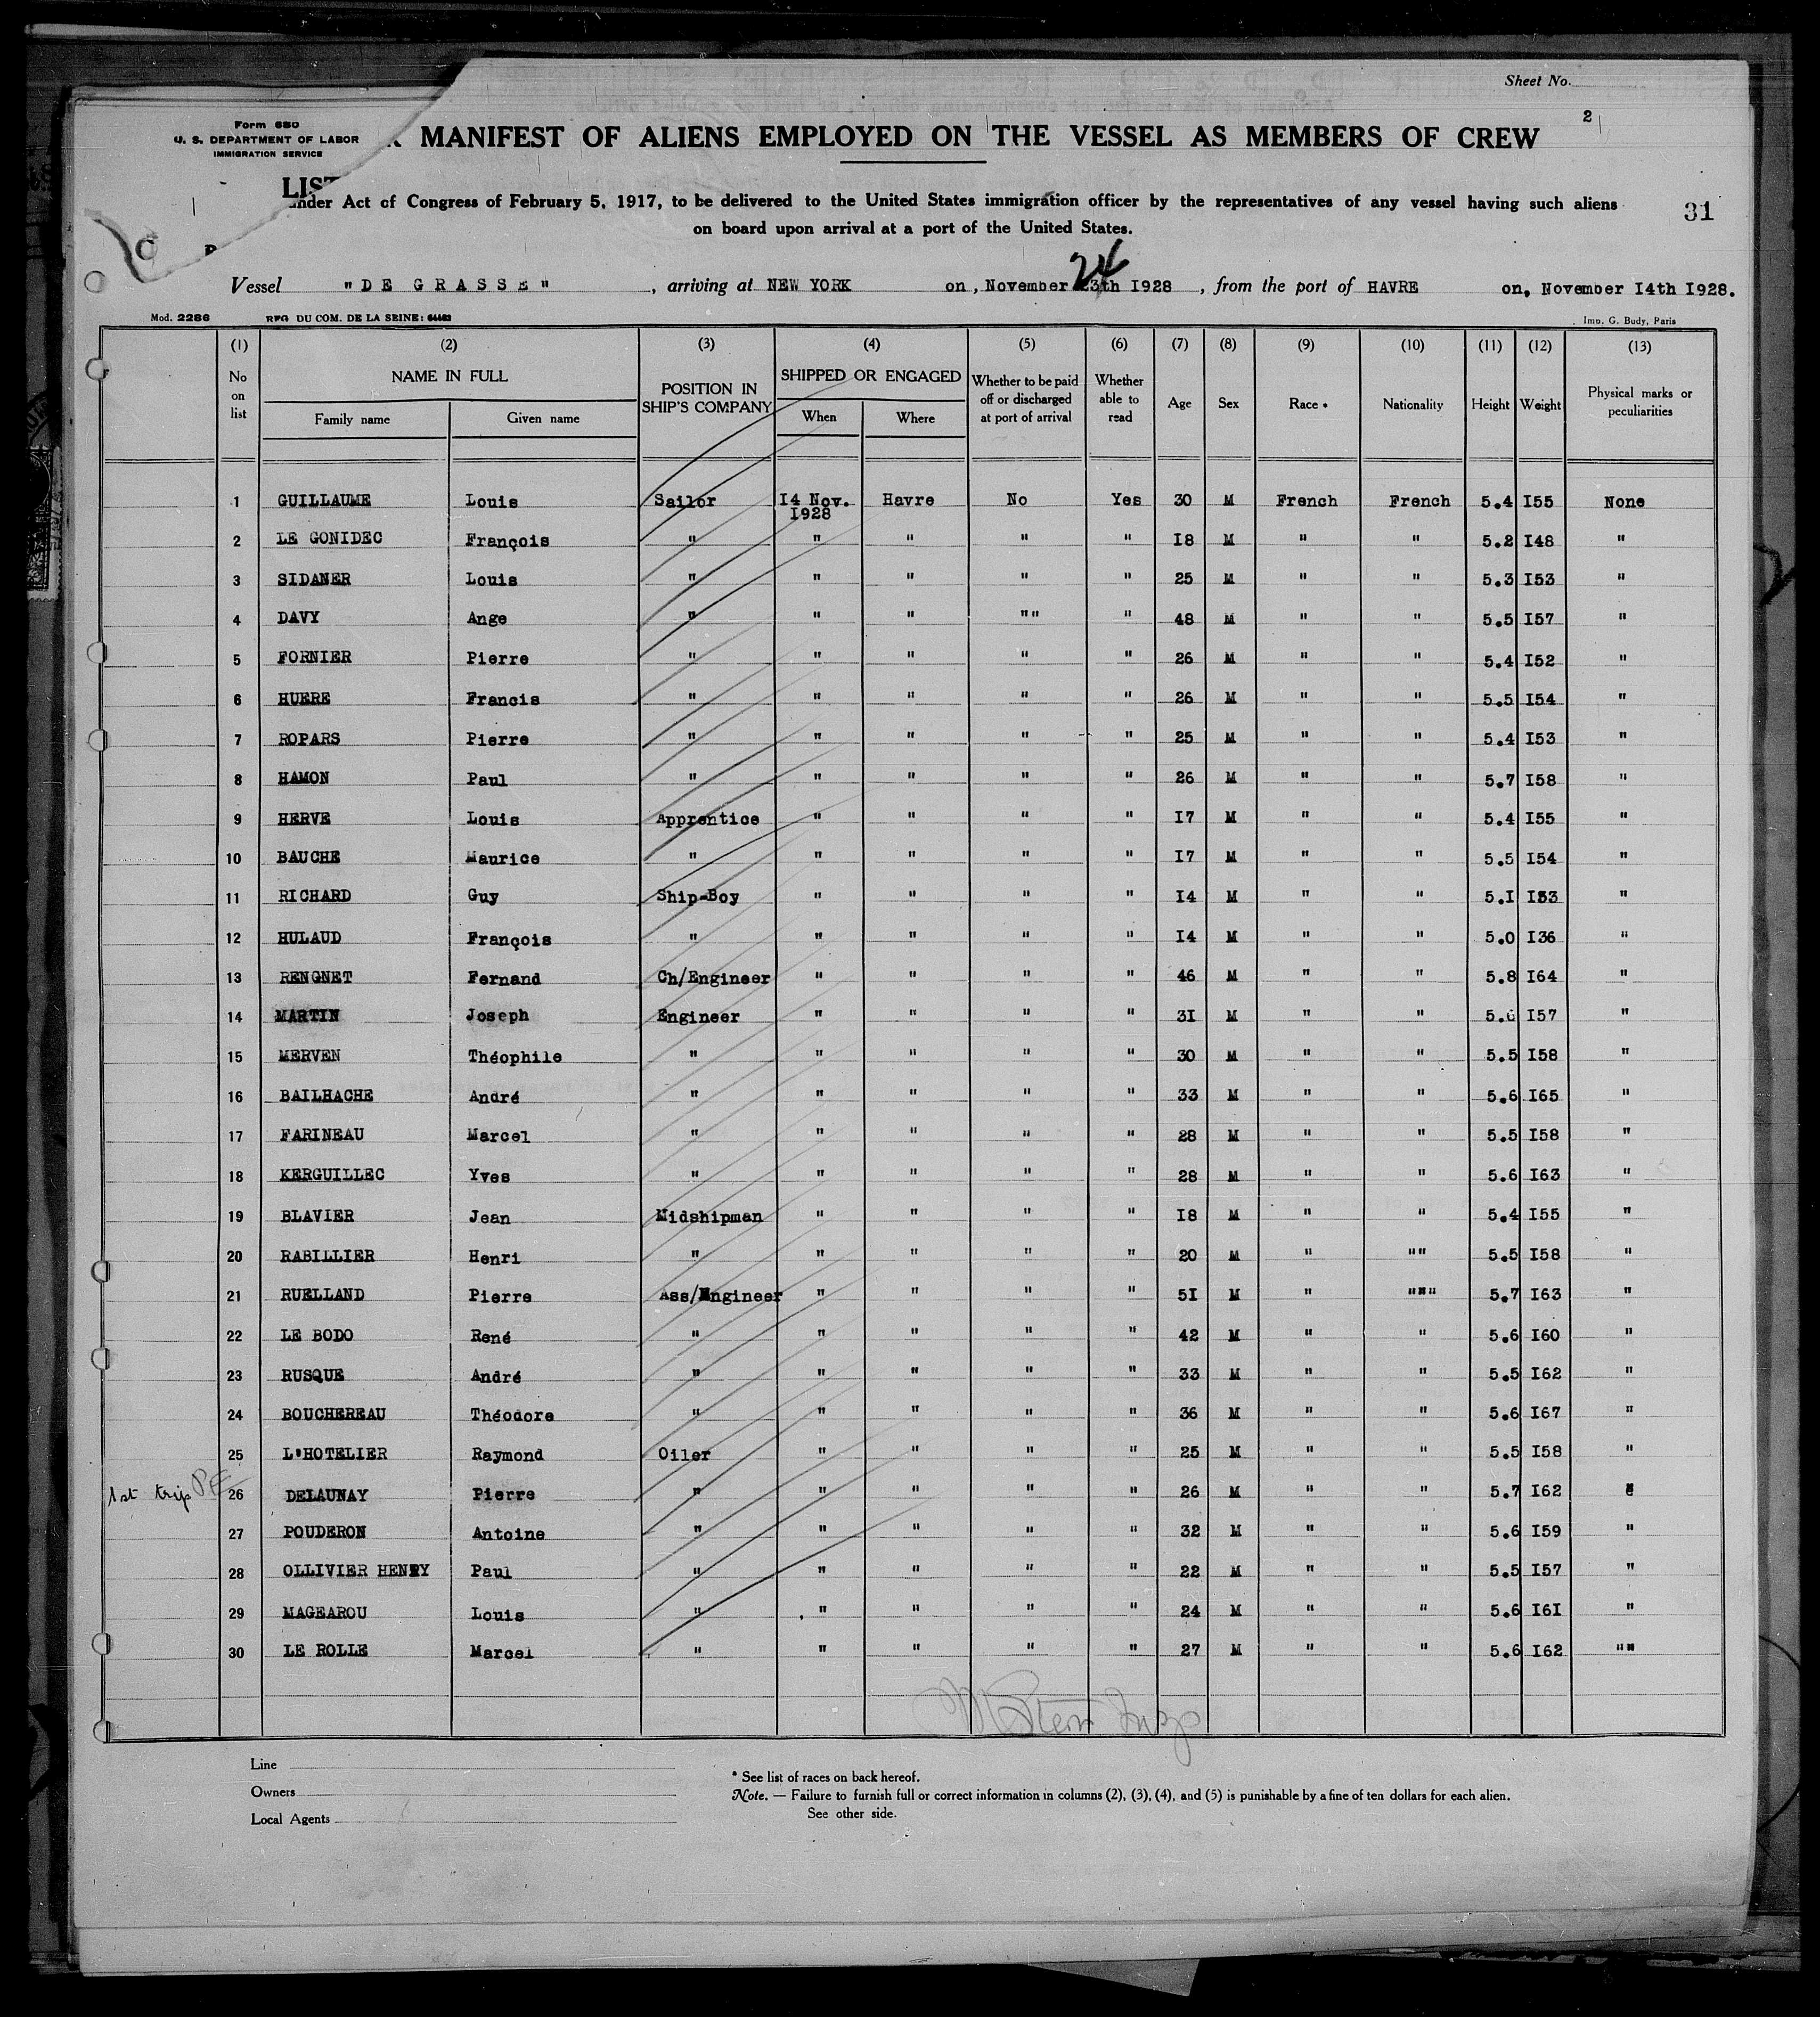 Sheet No.
2
Form 680
U. S. DEPARTMENT OF LABOR
IMMIGRATION SERVICE
MANIFEST OF ALIENS EMPLOYED ON THE VESSEL AS MEMBERS OF CREW
LIST
under Act of Congress of February 5, 1917, to be delivered to the United States immigration officer by the representatives of any vessel having such aliens
on board upon arrival at a port of the United States.
31
24
Vessel "DE GRASSE", arriving at NEW YORK on, November 23th 1928, from the port of HAVRE on, November 14th 1928.
Mod. 2286 REG DU COM. DE LA SEINE: 64462 Imp. G. Budy, Paris
(1) (2) (3) (4) (5) (6) (7) (8) (9) (10) (11) (12) (13)
No on list NAME IN FULL Family name Given name POSITION IN SHIP'S COMPANY SHIPPED OR ENGAGED When Where Whether to be paid off or discharged at port of arrival Whether able to read Age Sex Race * Nationality Height Weight Physical marks or peculiarities
1 GUILLAUME Louis Sailor 14 Nov. 1928 Havre No Yes 30 M French French 5.4 155 None
2 LE GONIDEC François " " " " " 18 M " " 5.2 148 "
3 SIDANER Louis " " " " " 25 M " " 5.3 153 "
4 DAVY Ange " " " "" " 48 M " " 5.5 157 "
5 FORNIER Pierre " " " " " 26 M " " 5.4 152 "
6 HUERE Francis " " " " " 26 M " " 5.5 154 "
7 ROPARS Pierre " " " " " 25 M " " 5.4 153 "
8 HAMON Paul " " " " " 26 M " " 5.7 158 "
9 HERVE Louis Apprentice " " " " 17 M " " 5.4 155 "
10 BAUCHE Maurice " " " " " 17 M " " 5.5 154 "
11 RICHARD Guy Ship-Boy " " " " 14 M " " 5.1 133 "
12 HULAUD François " " " " " 14 M " " 5.0 136 "
13 RENGNET Fernand Ch/Engineer " " " " 46 M " " 5.8 164 "
14 MARTIN Joseph Engineer " " " " 31 M " " 5.6 157 "
15 MERVEN Théophile " " " " " 30 M " " 5.5 158 "
16 BAILHACHE André " " " " " 33 M " " 5.6 165 "
17 FARINEAU Marcel " " " " " 28 M " " 5.5 158 "
18 KERGUILLEC Yves " " " " " 28 M " " 5.6 163 "
19 BLAVIER Jean Midshipman " " " " 18 M " " 5.4 155 "
20 RABILLIER Henri " " " " " 20 M " "" 5.5 158 "
21 RUELLAND Pierre Ass/Engineer " " " " 51 M " """ 5.7 163 "
22 LE BODO René " " " " " 42 M " " 5.6 160 "
23 RUSQUE André " " " " " 33 M " " 5.5 162 "
24 BOUCHEREAU Théodore " " " " " 36 M " " 5.6 167 "
25 L'HOTELIER Raymond Oiler " " " " 25 M " " 5.5 158 "
1st trip 26 DELAUNAY Pierre " " " " " 26 M " " 5.7 162 "
27 POUDERON Antoine " " " " " 32 M " " 5.6 159 "
28 OLLIVIER HENRY Paul " " " " " 22 M " " 5.5 157 "
29 MAGEAROU Louis " " " " " 24 M " " 5.6 161 "
30 LE ROLLE Marcel " " " " " 27 M " " 5.6 162 ""
Line
Owners
Local Agents
* See list of races on back hereof.
Note. — Failure to furnish full or correct information in columns (2), (3), (4), and (5) is punishable by a fine of ten dollars for each alien.
See other side.